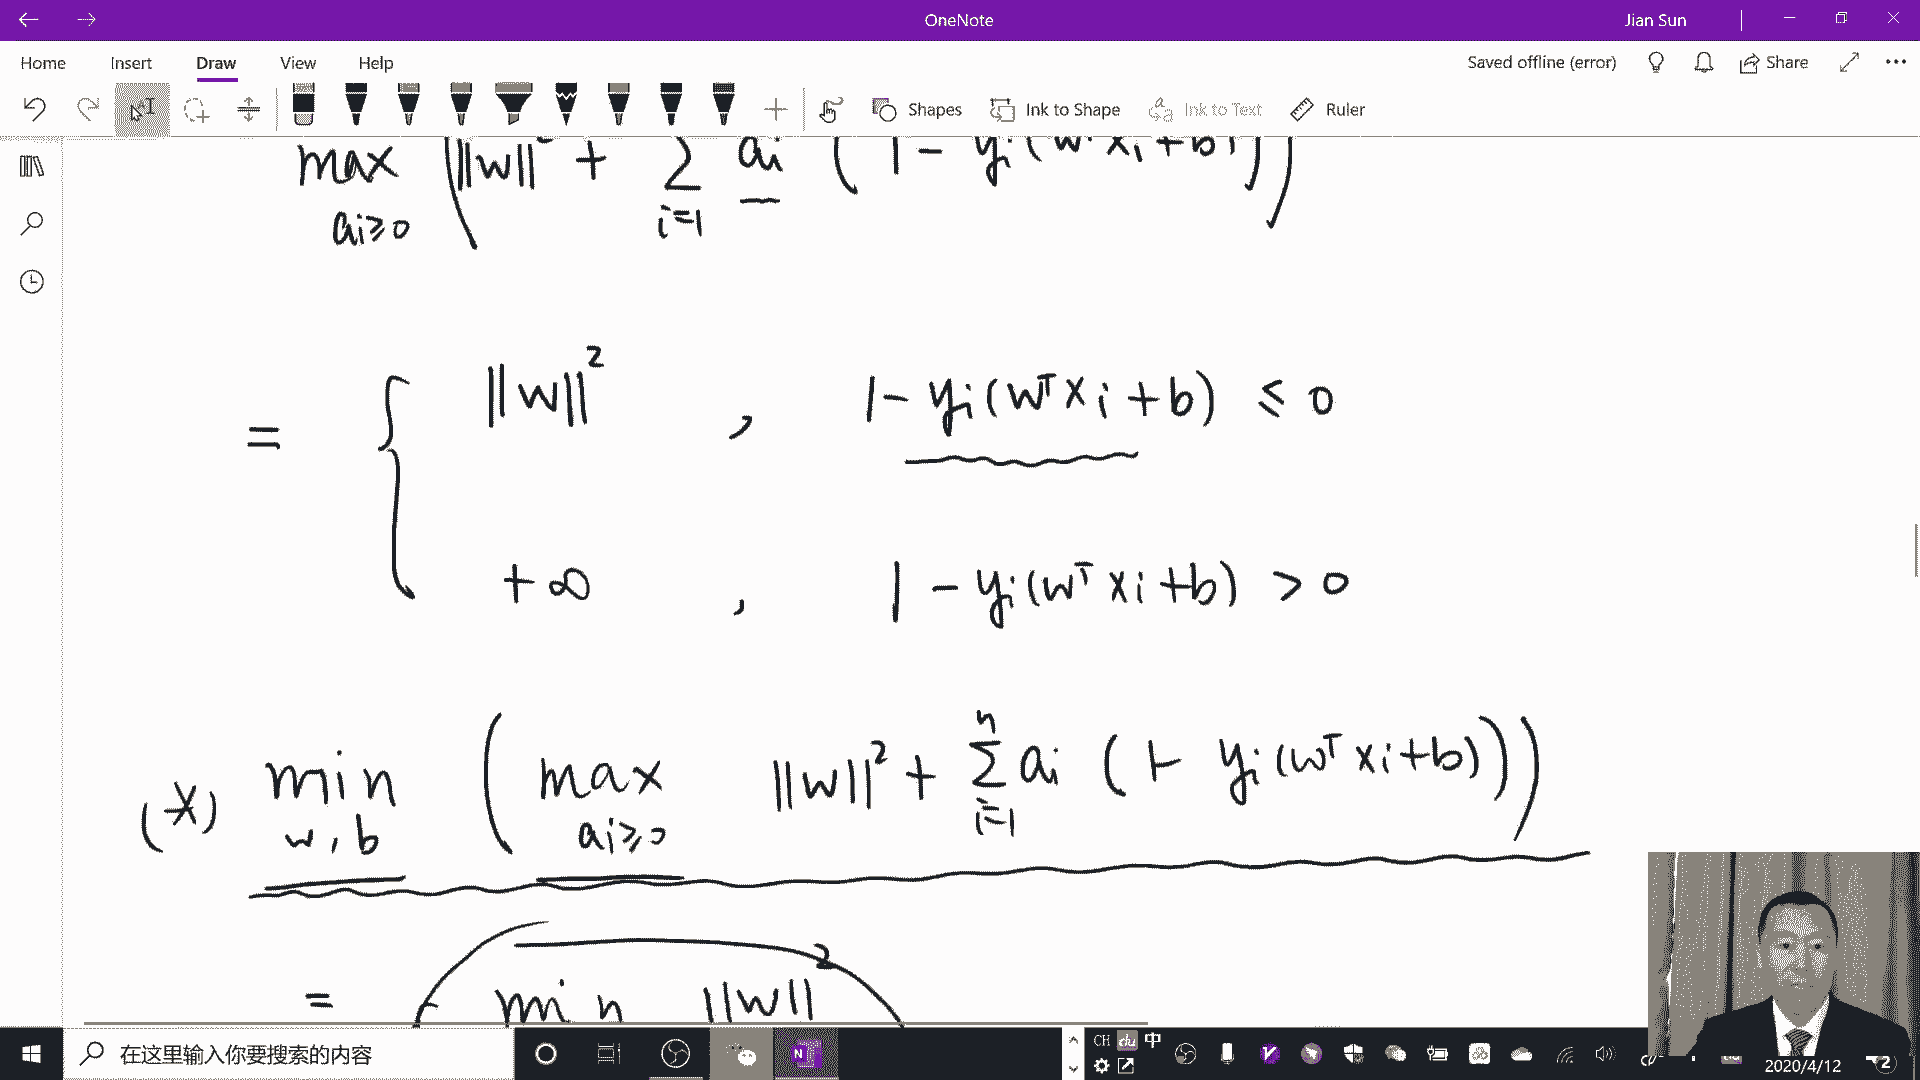 OneNote
Jian Sun
Home Insert Draw View Help
Saved offline (error)
Share
Shapes
Ink to Shape
Ink to Text
Ruler
max (||w||² + Σ ai ( 1 - yi(wᵀxi+b)))
ai≥0 i=1
= { ||w||² , 1- yi(wᵀxi+b) ≤ 0
+∞ , 1 - yi(wᵀxi+b) > 0
(*) min ( max ||w||² + Σ ai (1- yi(wᵀxi+b)))
w,b ai≥0 i=1 n
= min ||w||²
在这里输入你要搜索的内容
CH du 中
2020/4/12
2